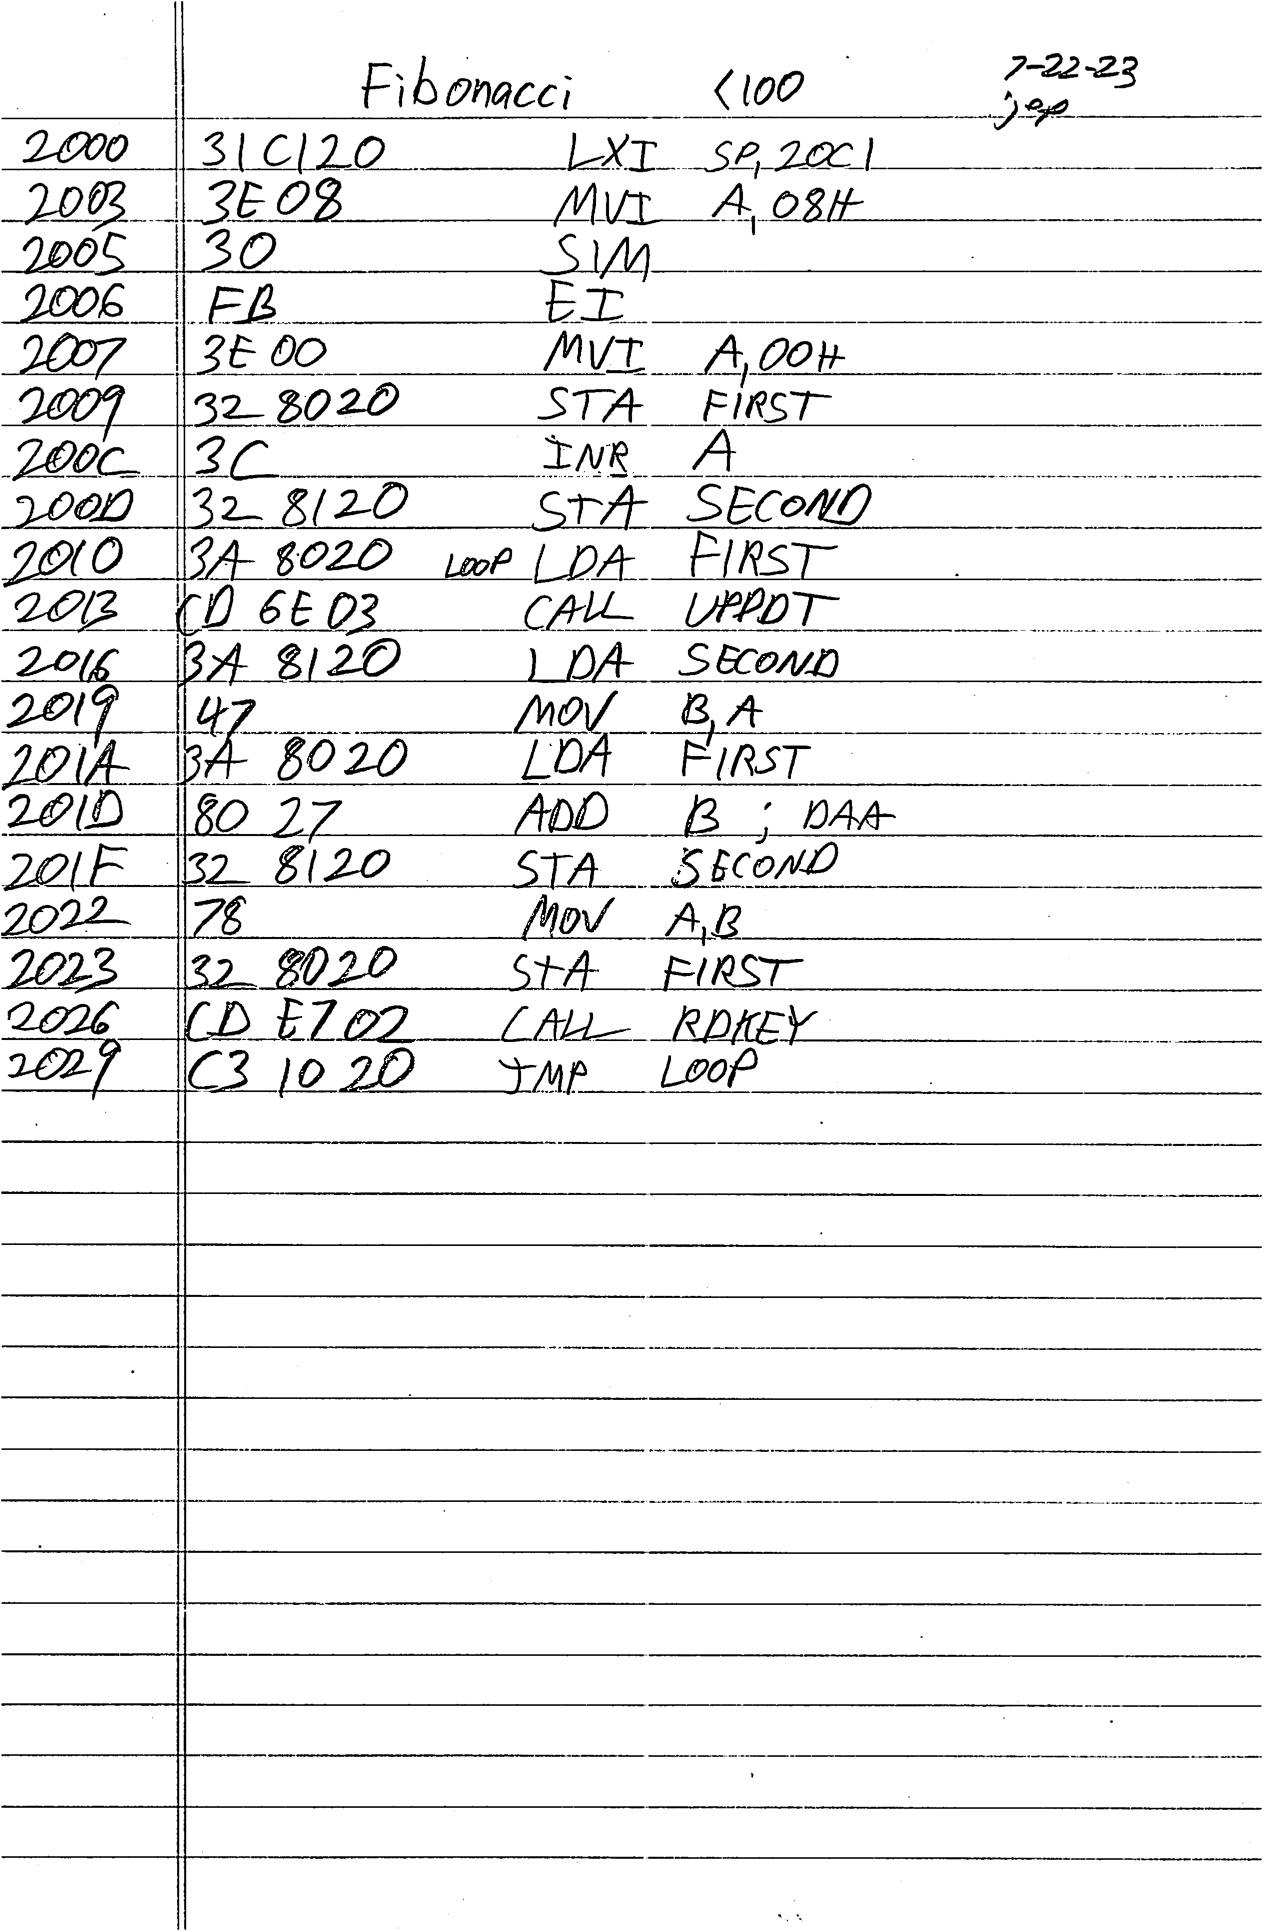 Fibonacci <100 7-22-23
jep
2000 31C120 LXI SP,20C1
2003 3E08 MVI A,08H
2005 30 SIM
2006 FB EI
2007 3E00 MVI A,00H
2009 32 8020 STA FIRST
200C 3C INR A
200D 32 8120 STA SECOND
2010 3A 8020 LOOP LDA FIRST
2013 CD 6E 03 CALL UPPDT
2016 3A 8120 LDA SECOND
2019 47 MOV B,A
201A 3A 8020 LDA FIRST
201D 80 27 ADD B ; DAA
201F 32 8120 STA SECOND
2022 78 MOV A,B
2023 32 8020 STA FIRST
2026 CD E7 02 CALL RDKEY
2029 C3 10 20 JMP LOOP